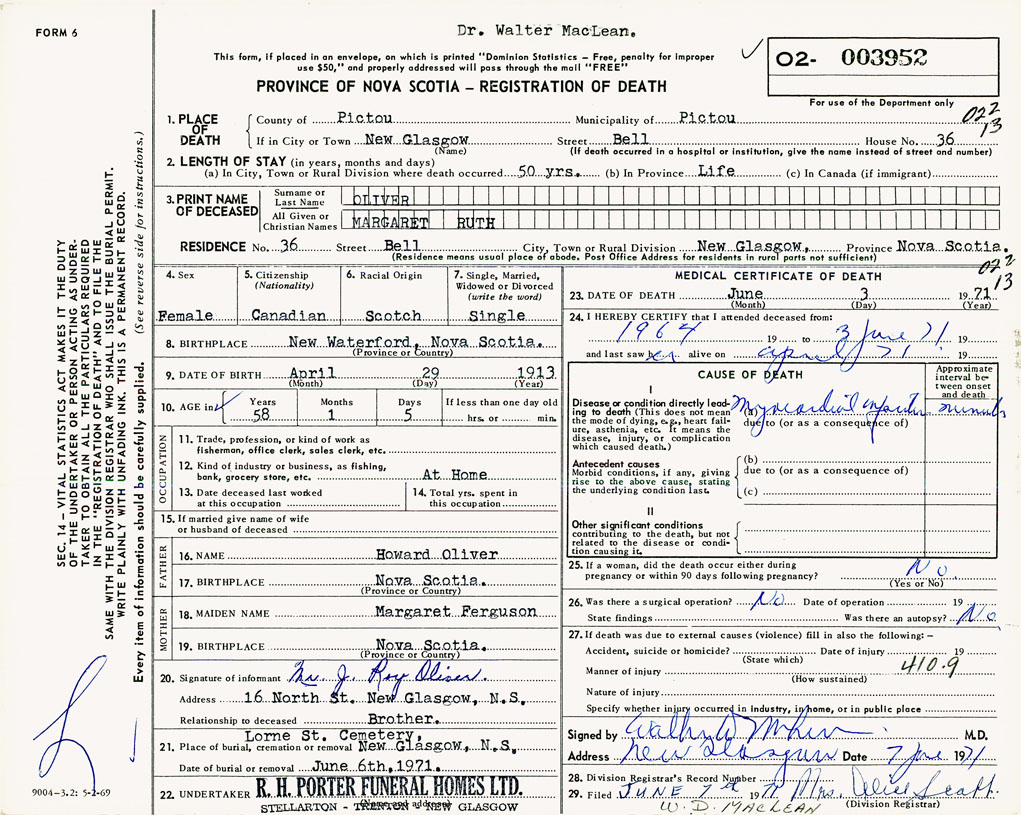 FORM 6
Dr. Walter MacLean.
This form, if placed in an envelope, on which is printed "Dominion Statistics – Free, penalty for improper
use $50," and properly addressed will pass through the mail "FREE"
02- 003952
For use of the Department only
PROVINCE OF NOVA SCOTIA – REGISTRATION OF DEATH
022
13
1. PLACE OF DEATH
County of Pictou Municipality of Pictou
If in City or Town New Glasgow Street Bell House No. 36
(Name) (If death occurred in a hospital or institution, give the name instead of street and number)
2. LENGTH OF STAY (in years, months and days)
(a) In City, Town or Rural Division where death occurred 50 yrs. (b) In Province Life (c) In Canada (if immigrant)
3. PRINT NAME OF DECEASED
Surname or Last Name OLIVER
All Given or Christian Names MARGARET RUTH
RESIDENCE No. 36 Street Bell City, Town or Rural Division New Glasgow, Province Nova Scotia.
(Residence means usual place of abode. Post Office Address for residents in rural parts not sufficient)
4. Sex
Female
5. Citizenship
(Nationality)
Canadian
6. Racial Origin
Scotch
7. Single, Married,
Widowed or Divorced
(write the word)
Single
8. BIRTHPLACE New Waterford, Nova Scotia.
(Province or Country)
9. DATE OF BIRTH April 29 1913
(Month) (Day) (Year)
10. AGE in
Years Months Days If less than one day old
58 1 5 hrs. or min.
OCCUPATION
11. Trade, profession, or kind of work as
fisherman, office clerk, sales clerk, etc.
12. Kind of industry or business, as fishing,
bank, grocery store, etc. At Home
13. Date deceased last worked
at this occupation
14. Total yrs. spent in
this occupation
15. If married give name of wife
or husband of deceased
FATHER
16. NAME Howard Oliver
17. BIRTHPLACE Nova Scotia.
(Province or Country)
MOTHER
18. MAIDEN NAME Margaret Ferguson
19. BIRTHPLACE Nova Scotia.
(Province or Country)
20. Signature of informant Mr. J. Roy Oliver.
Address 16 North St. New Glasgow, N.S.
Relationship to deceased Brother.
Lorne St. Cemetery,
21. Place of burial, cremation or removal New Glasgow, N.S.
Date of burial or removal June 6th, 1971.
22. UNDERTAKER R. H. PORTER FUNERAL HOMES LTD.
(Name and address)
STELLARTON - TRENTON - NEW GLASGOW
MEDICAL CERTIFICATE OF DEATH
022
13
23. DATE OF DEATH June 3 1971
(Month) (Day) (Year)
24. I HEREBY CERTIFY that I attended deceased from:
1964 19 to 3 June 71 19
and last saw her alive on April 71 19
CAUSE OF DEATH
Approximate
interval be-
tween onset
and death
I
Disease or condition directly lead-
ing to death (This does not mean
the mode of dying, e.g., heart fail-
ure, asthenia, etc. It means the
disease, injury, or complication
which caused death.)
(a) Myocardial infarction minutes
due to (or as a consequence of)
Antecedent causes
Morbid conditions, if any, giving
rise to the above cause, stating
the underlying condition last.
(b)
due to (or as a consequence of)
(c)
II
Other significant conditions
contributing to the death, but not
related to the disease or condi-
tion causing it.
25. If a woman, did the death occur either during
pregnancy or within 90 days following pregnancy? No.
(Yes or No)
26. Was there a surgical operation? No Date of operation 19
State findings Was there an autopsy? No
27. If death was due to external causes (violence) fill in also the following: –
Accident, suicide or homicide? Date of injury 19
(State which)
Manner of injury 410.9
(How sustained)
Nature of injury
Specify whether injury occurred in industry, in home, or in public place
Signed by M.D.
Address New Glasgow Date 7 June 1971
28. Division Registrar's Record Number
29. Filed JUNE 7th 1971 Mrs. Alice Scott.
(Division Registrar)
W. D. MACLEAN
SEC. 14 – VITAL STATISTICS ACT MAKES IT THE DUTY
OF THE UNDERTAKER OR PERSON ACTING AS UNDER-
TAKER TO OBTAIN ALL THE PARTICULARS REQUIRED
IN THE "REGISTRATION OF DEATH" AND TO FILE THE
SAME WITH THE DIVISION REGISTRAR WHO SHALL ISSUE THE BURIAL PERMIT.
WRITE PLAINLY WITH UNFADING INK. THIS IS A PERMANENT RECORD.
Every item of information should be carefully supplied. (See reverse side for instructions.)
9004-3.2: 5-2-69